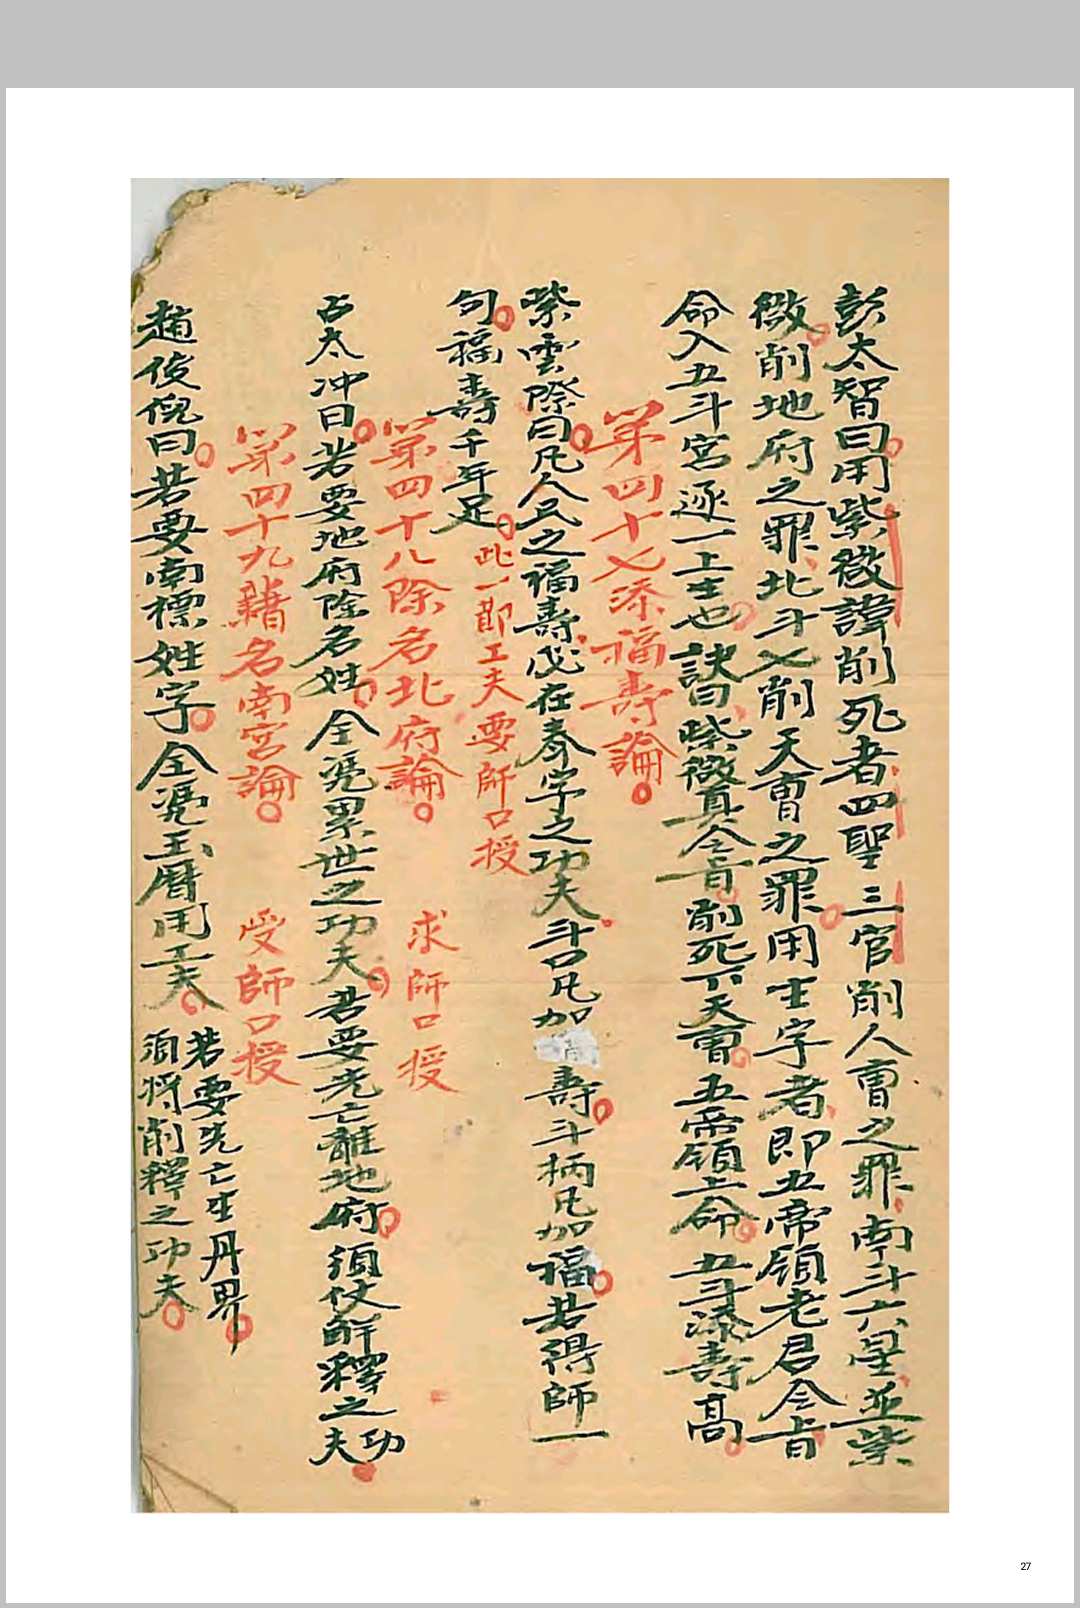 彭太智曰用紫微諱削死者四聖三官削人曹之罪南斗六星並紫
微削地府之罪北斗七削天曹之罪用士字者即五帝領老君令旨
命入五斗宮逐一上生也訣曰紫微真令旨削死下天曹五帝領上命五斗添壽高
第四十七添福壽論
紫雲際曰凡人民之福壽必在泰字之功夫斗口凡加壽斗柄凡加福若得師一
句福壽千年足此一節工夫要師口授
第四十八除名北府論 求師口授
占太冲曰若要地府除名姓全憑累世之功夫若要先亡離地府須仗解釋之功夫
第四十九籍名南宮論 受師口授
趙俊倪曰若要南標姓字全憑玉曆用工夫若要先亡生丹界
須將削釋之功夫
27